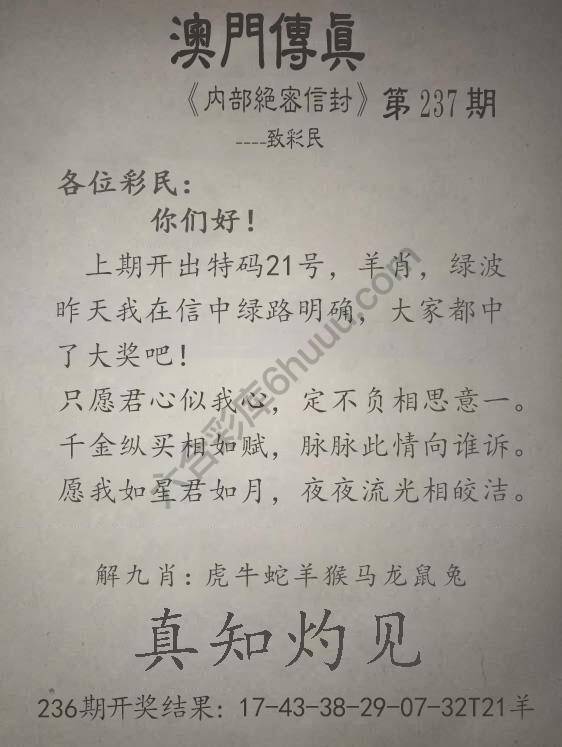 澳門傳眞
《内部絕密信封》第237期
----致彩民
各位彩民：
你们好！
上期开出特码21号，羊肖，绿波
昨天我在信中绿路明确，大家都中
了大奖吧！
只愿君心似我心，定不负相思意一。
千金纵买相如赋，脉脉此情向谁诉。
愿我如星君如月，夜夜流光相皎洁。
六合彩库6huuu.com
解九肖：虎牛蛇羊猴马龙鼠兔
真知灼见
236期开奖结果：17-43-38-29-07-32T21羊